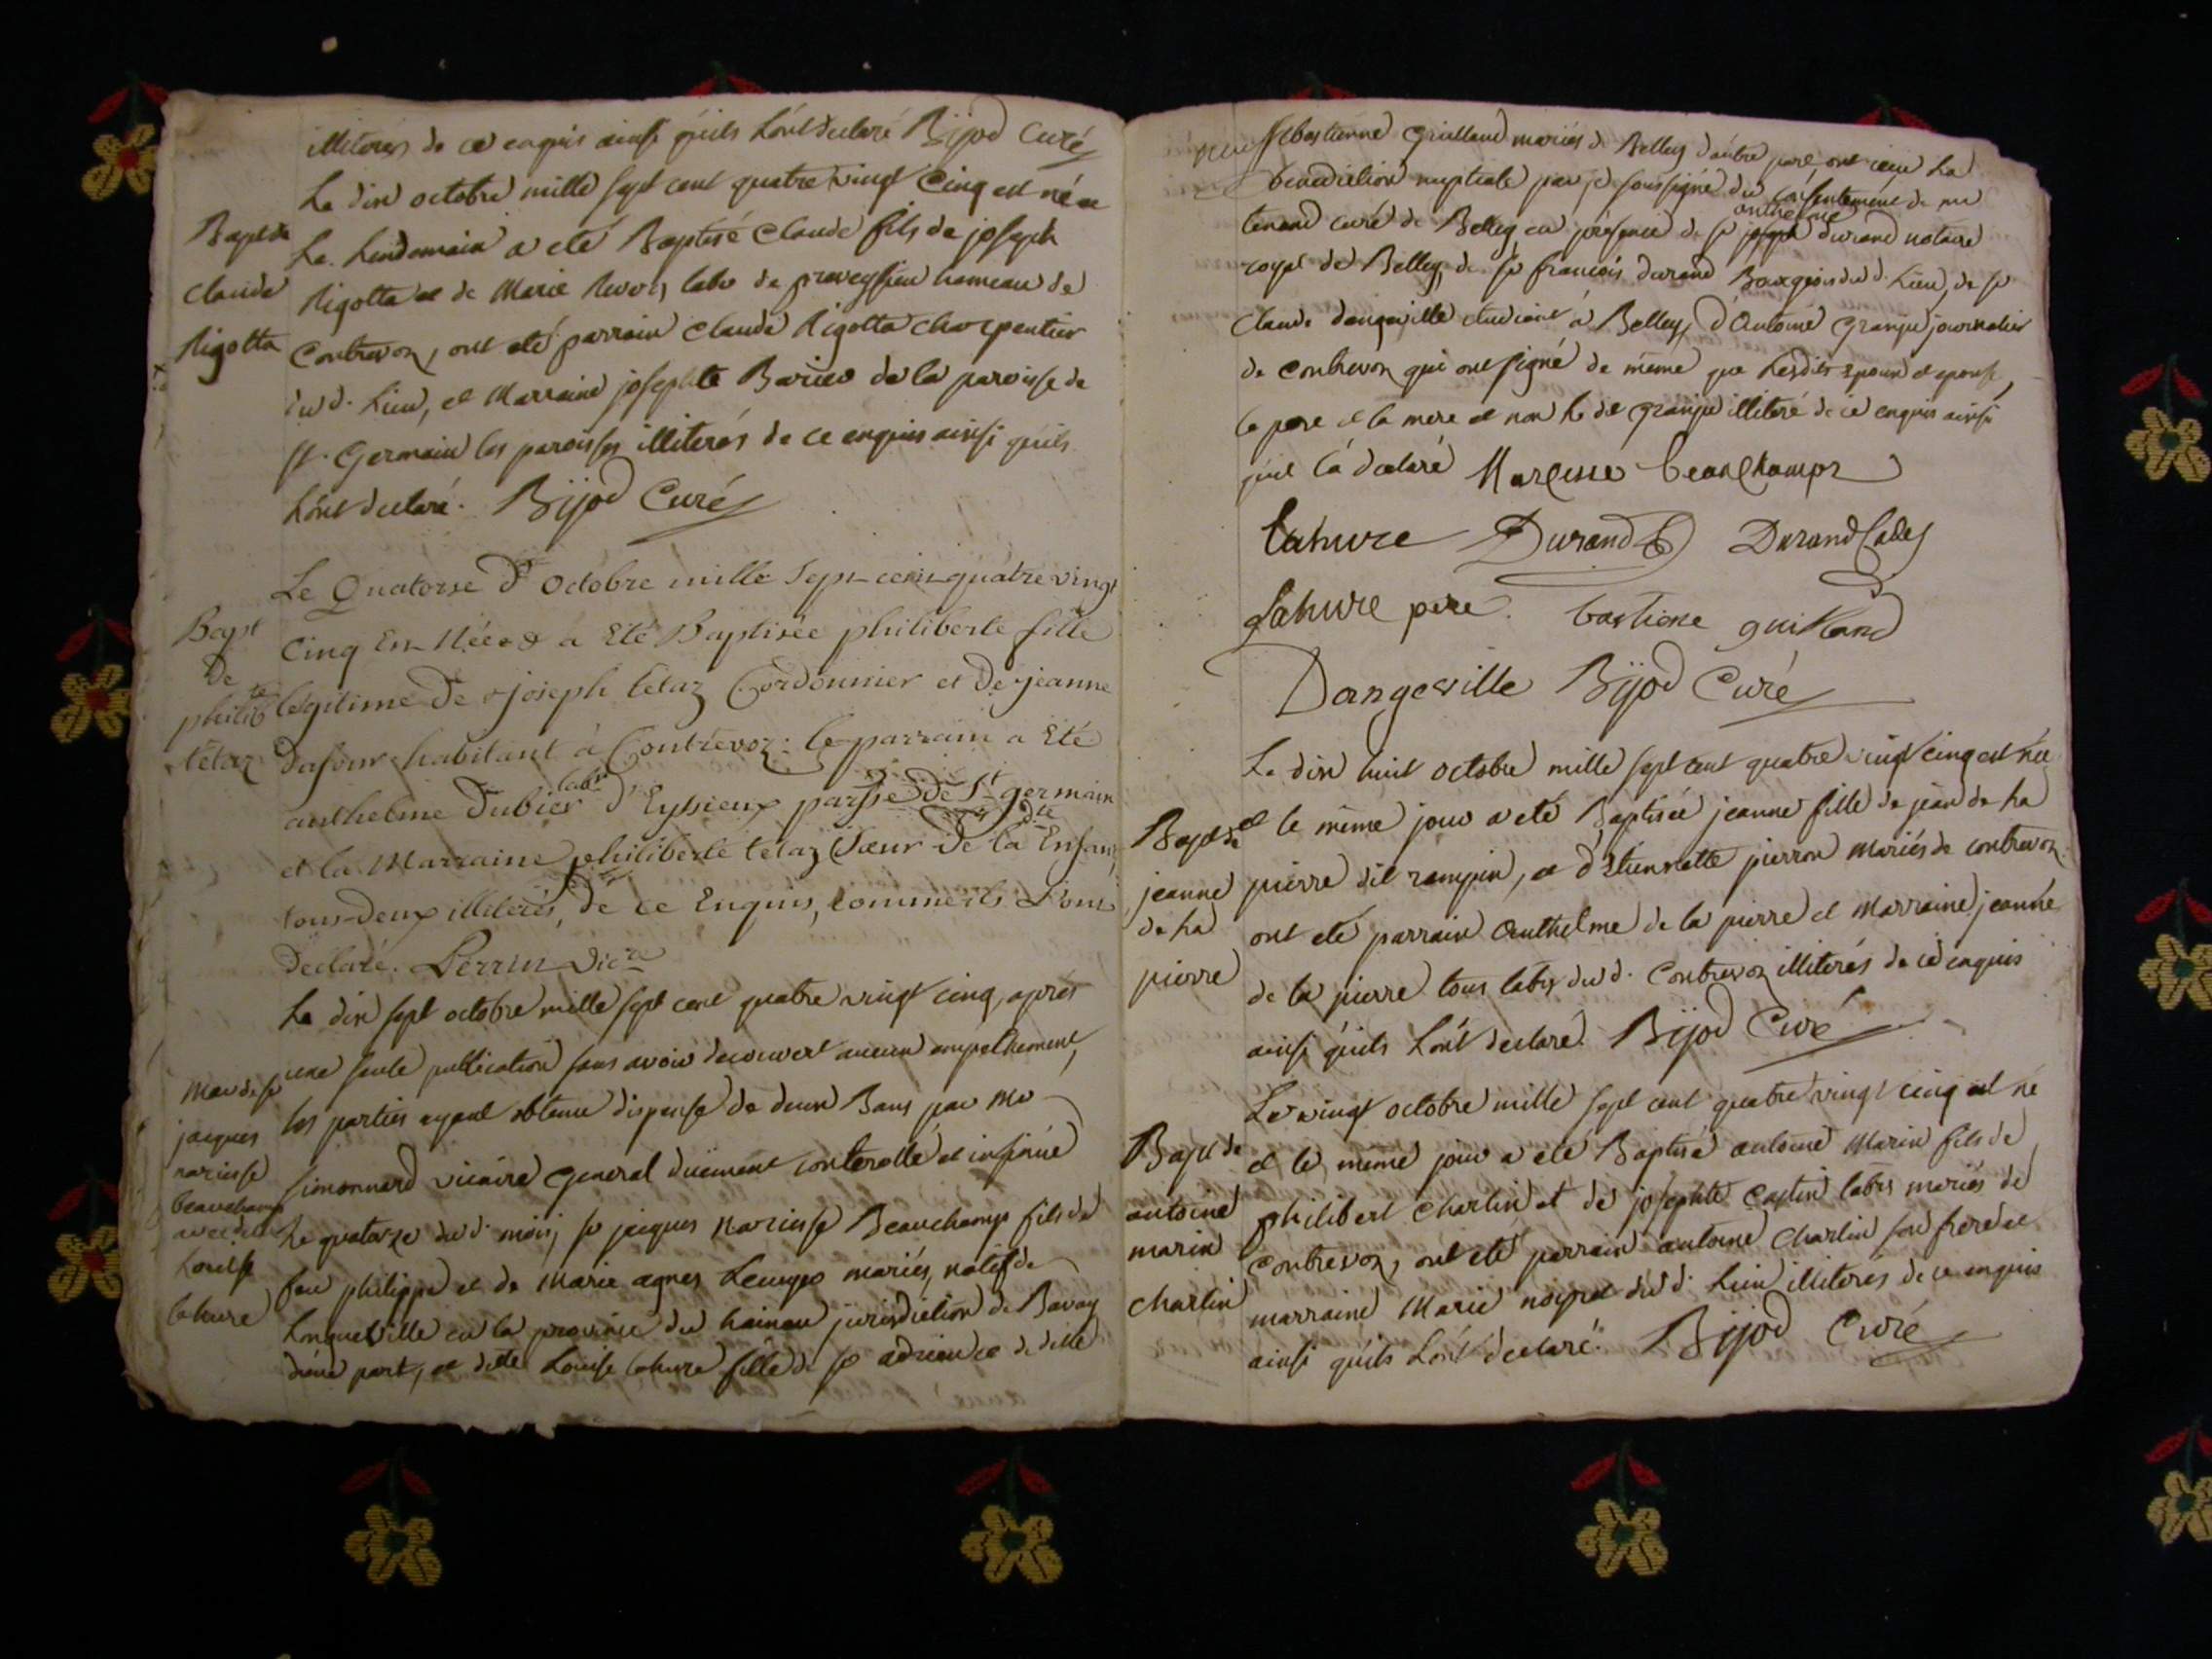 illiterés de ce enquis ainsi qu'ils l'ont declaré Bijod Curé
Le dix octobre mille sept cent quatre vingt cinq est né et
Bapt de
Le Lendemain a eté Baptisé Claude fils de joseph
Claude
Rigotta et de Marie labr de preveyssieu hameau de
Rigotta
Contrevoz, ont eté parrain Claude Rigotta charpentier
dud. Lieu, et Marraine josephte de la paroisse de
st. Germain les paroisses illiterés de ce enquis ainsi qu'ils
l'ont declaré. Bijod Curé
Le Quatorse d'Octobre mille Sept cent quatre vingt
Bapt
Cinq Est Née et a Eté Baptisée philiberte fille
De
philibte
legitime De joseph tétaz Cordonnier et De jeanne
tétaz
dafour habitant à Contrevoz: le parrain a Eté
anthelme Dubier labr d'Eyssieux parsse De St germain
et la Marraine philiberte tétaz Sœur De la dte Enfant,
tous Deux illiterés, de ce Enquis, comme ils L'ont
Declaré. Perrin Vicre
Le dix sept octobre mille sept cent quatre vingt cinq, après
une seule publication sans avoir decouvert aucun empechement,
Mar de sr
les parties ayant obtenu dispense de deux Bans par Mr
jacques
simonnard vicaire general duement controllé et insinué
narcisse
beauchamp
avec dlle
Le quatorze dud. mois, sr jacques Narcisse Beauchamps fils de
Louise
feu philippe et de Marie agnes mariés, natif de
lahure
Longueville en la province du hainau jurisdiction de Bavay
d'une part, et dlle Louise lahure fille de sr adrien et de dlle
sebastienne Guilland mariés de Belley d'autre part ont reçu La
benediction nuptiale par je soussigné du consentement de mr
tenand curé de Belley en présence de sr anthelme durand notaire
royal de Belley, de sr francois durand Bourgeois dud. Lieu, de sr
Claude dangeville etudiant à Belley, d'Antoine Granju journalier
de Contrevoz qui ont signé de même que lesdits epoux et epouse,
le pere et la mere et non le dt Granju illiteré de ce enquis ainsi
qu'il l'a declaré Narcisse beauchamps
Lahure Durand Durand Cadet
Lahure pere. bastiene guilland
Dangeville Bijod Curé
Le dix huit octobre mille sept cent quatre vingt cinq est née
Bapt de
et le même jour a eté Baptisée jeanne fille de jean de La
jeanne
pierre dit rampin, et d'Etiennette pierron mariés de contrevoz
de La
ont eté parrain anthelme de la pierre et Marraine jeanne
pierre
de la pierre tous labrs dud. Contrevoz illiterés de ce enquis
ainsi qu'ils l'ont declaré. Bijod Curé
Le vingt octobre mille sept cent quatre vingt cinq est né
Bapt de
et le même jour a eté Baptisé antoine Marin fils de
antoine
philibert Charlin et de josephte Castin labrs mariés de
marin
contrevoz, ont eté parrain antoine Charlin son frere et
charlin
marraine Marie dud. Lieu illiterés de ce enquis
ainsi qu'ils l'ont declaré. Bijod Curé